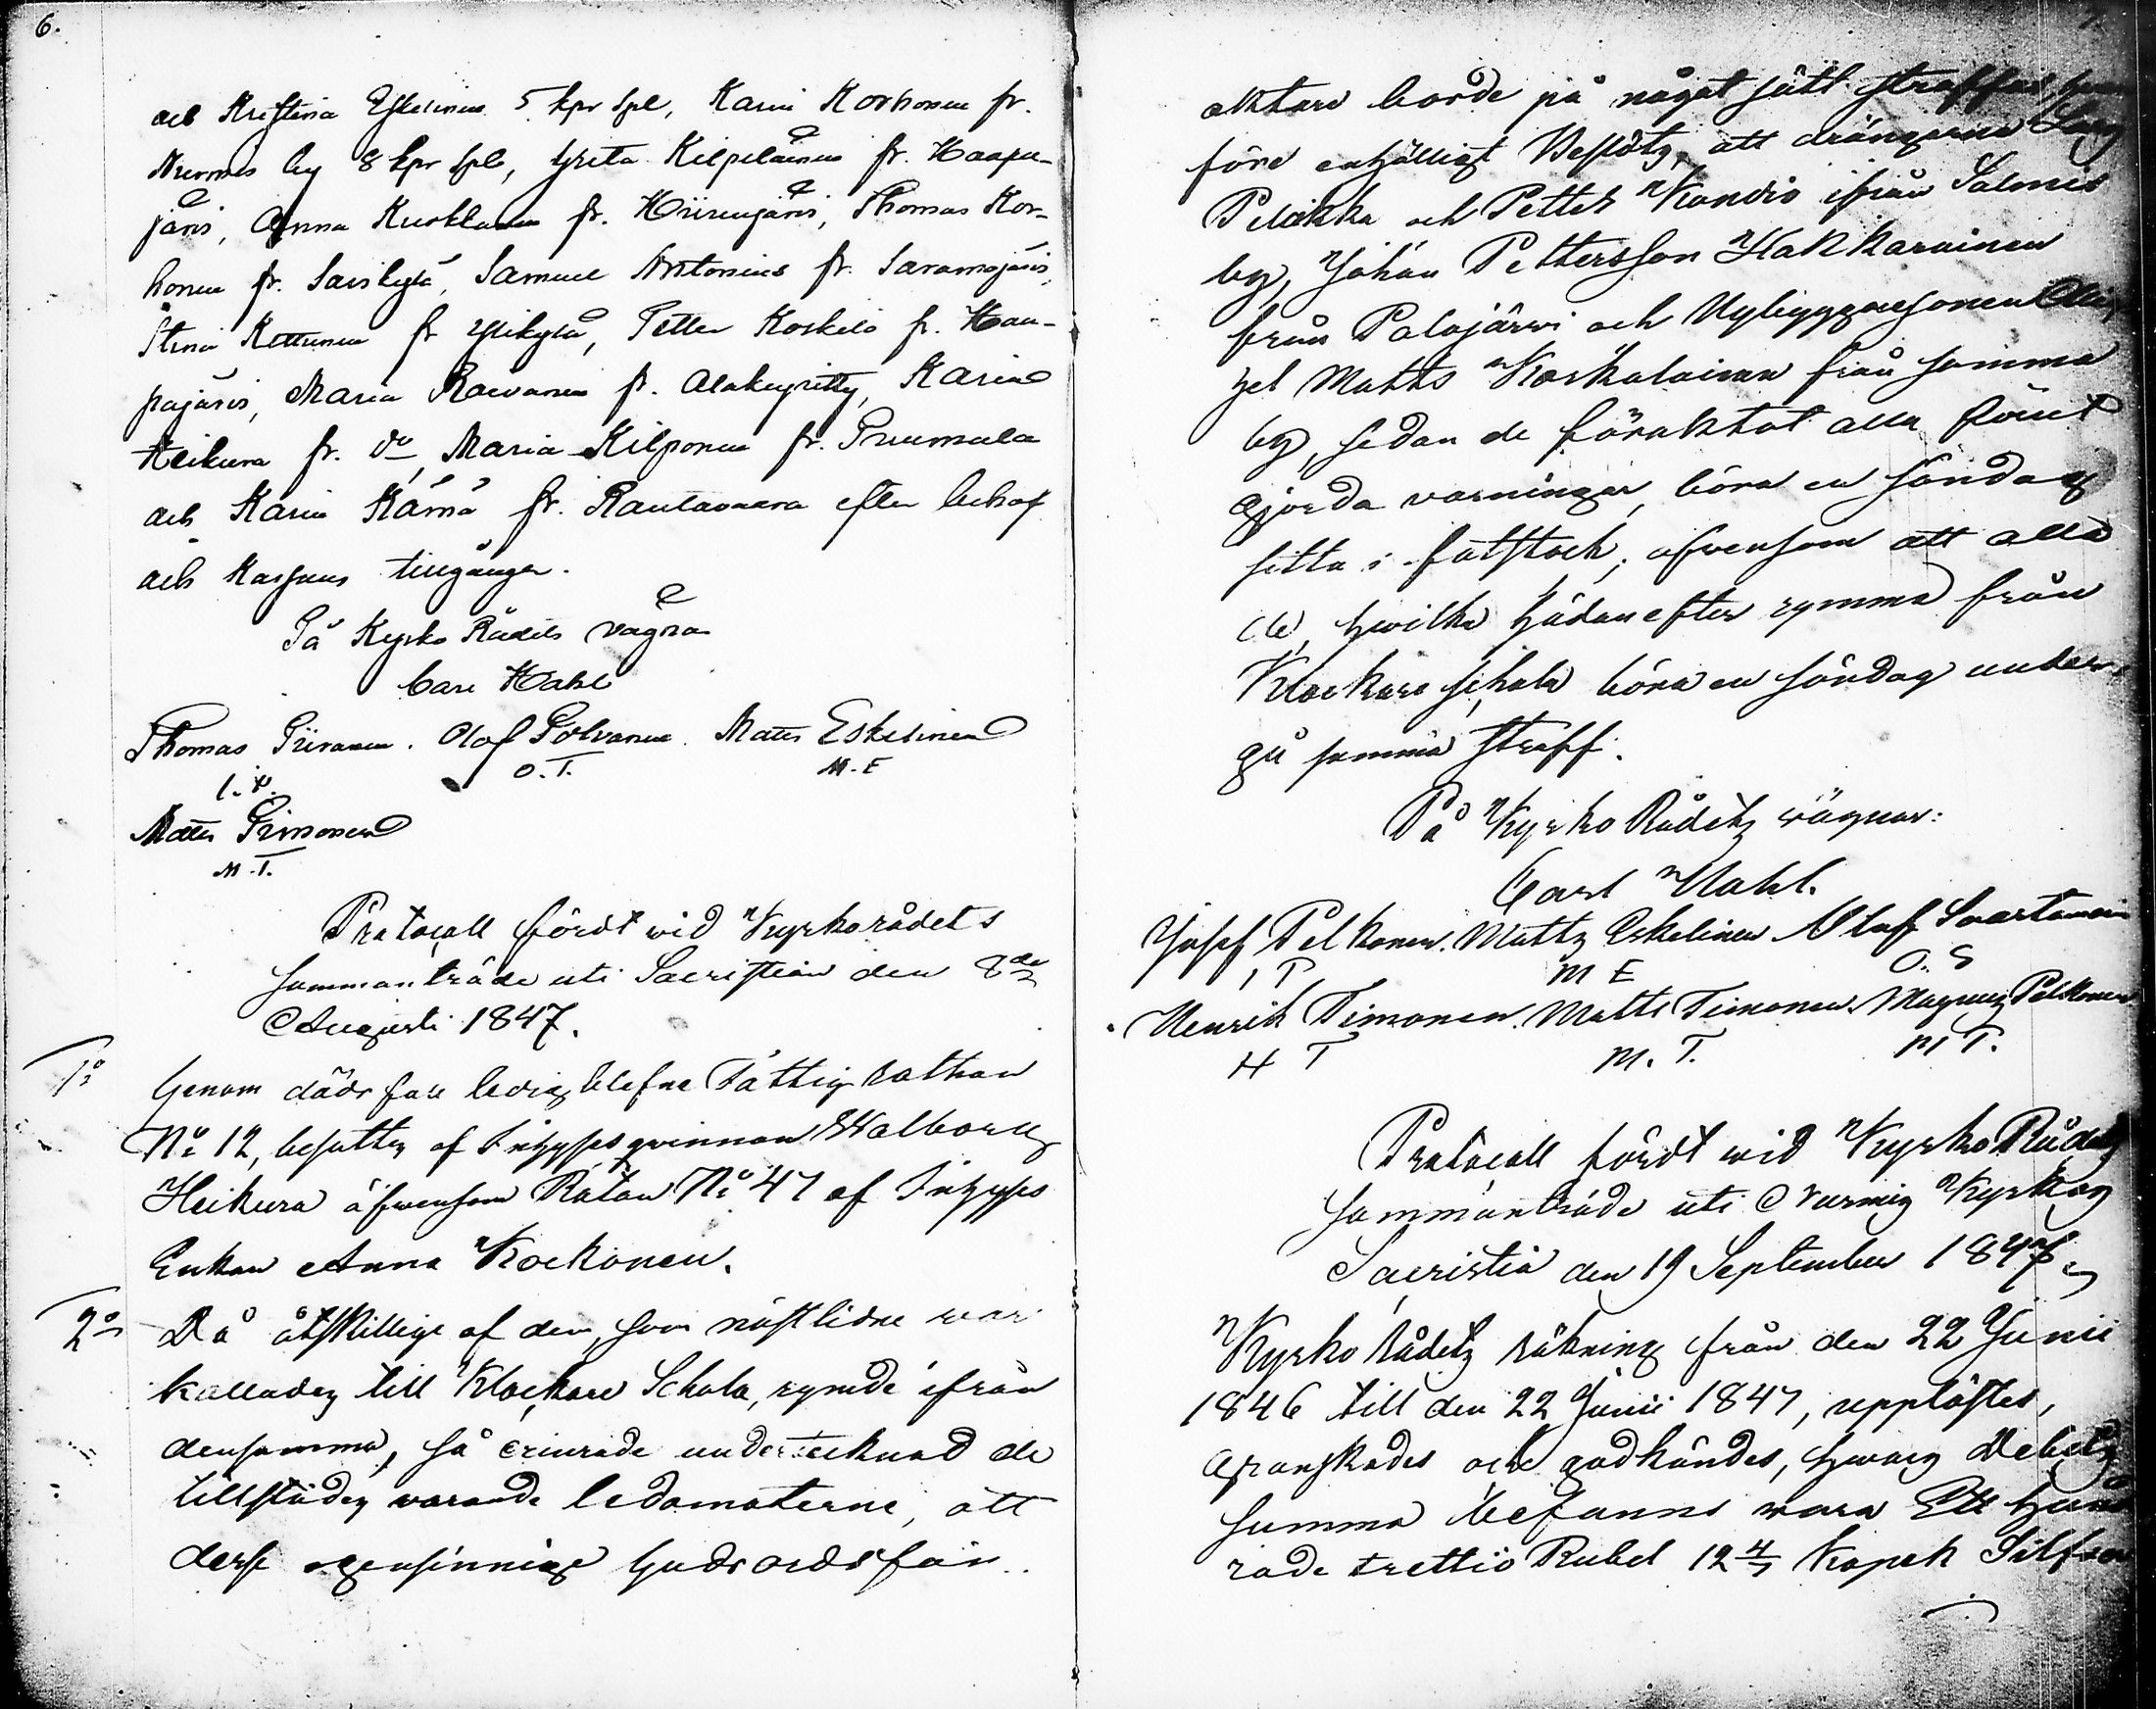 6.
och Kristina Eskelinen 5 kpr spl, Karin Korhonen fr.
Nurmis by 8 kpr spl, Greta Kilpeläinen fr. Haapa-
järvi, Anna Kurklanen fr. Hiirenjärvi, Thomas Kor-
honen fr. Savikylä, Samuel Antonius fr. Saramojärvi,
Stina Kettunen fr Ylikylä, Petter Koskelo fr. Haa-
pajärvi, Maria Raevanen fr. Alakeyritty, Karin
Heikura fr. do, Maria Kilponen fr. Puumala
och Karin Kämä fr. Rautavaara efter behof
och Kassans tillgångar.
På Kyrko Rådets vägnar
Carl Hahl
Thomas Piiranen. Olof Tolvanen. Matts Eskelinen
O.T. M.E
Matts Timonen
M.T.
Protocoll fördt wid Kyrkorådets
sammanträde uti Sacristian den 8de
Augusti 1847.
1o Genom dödsfall ledigblefne Fattig rathan
No 12, besattes af Inhyses qvinnan Walborg
Heikura äfwensom Ratan No 47 af Inhyses
Enkan Anna Kockonen.
2o Då åtskillige af dem, som nästlidne war
kallades till Klockare Schola, rymde ifrån
densamma, så erinrade undertecknad de
tillstädes varande ledamoterne, att
desse egensinnige Gudsordsför-
aktare borde på något sätt straffas,
före enhälligt Beslöts, att drängarne
Pelikka och Petter Kondio ifrån Salmis
by, Johan Pettersson Hakkarainen
från Palojärwi och Nybyggaresonen
zel Matts Korhalainen från samma
by, sedan de föraktat alla
gjorda varningar, böra en söndag
sitta i fotstock; äfvensom att alla
de, hwilka hädanefter rymma från
Klockare schola böra en söndag under-
gå samma straff.
På Kyrko Rådets wägnar:
Carl Hahl.
Josef Pelkonen. Matts Eskelinen Olof Saartamoin
I P M E O. S
Henrik Timonen. Matts Timonen. Magnus Pelkonen
H T M. T. M P.
Protocoll fördt wid Kyrko Rådets
sammanträde uti Nurmis Kyrkas
Sacristia den 19 September 1847.
Kyrko Rådets räkning från den 22 Junii
1846 till den 22 Junii 1847, upplästes,
granskades och godkändes, hwars Debets
summa befanns wara Ett hund
rade trettio Rubel 12 4/7 Kopek Silfver